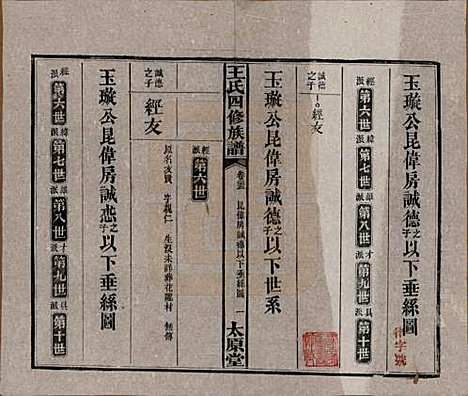 玉璇公昆偉房誠德之子以下垂絲圖
經派 第六世 緯派 第七世 雄派 第八世 才派 第九世 具派 第十世
誠德之子 經友
玉璇公昆偉房誠德之子以下世系
王氏四修族譜 卷 昆偉房誠 以下垂絲圖 一 太原堂
經派 第六世
誠德之子 經友
原名友 字親仁 生沒未詳葬花隴村 無傳
玉璇公昆偉房誠 之子以下垂絲圖
經派 第六世 緯派 第七世 雄派 第八世 才派 第九世 具派 第十世